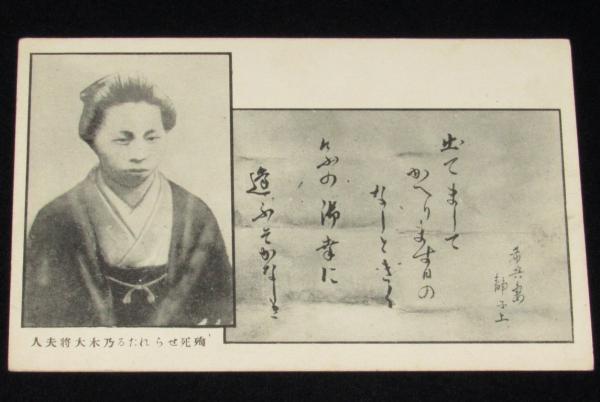 希典妻
静子上
出てまして
かへります日の
なしときく
けふの御幸に
逢ふそかなしき
殉死せられたる乃木大將夫人